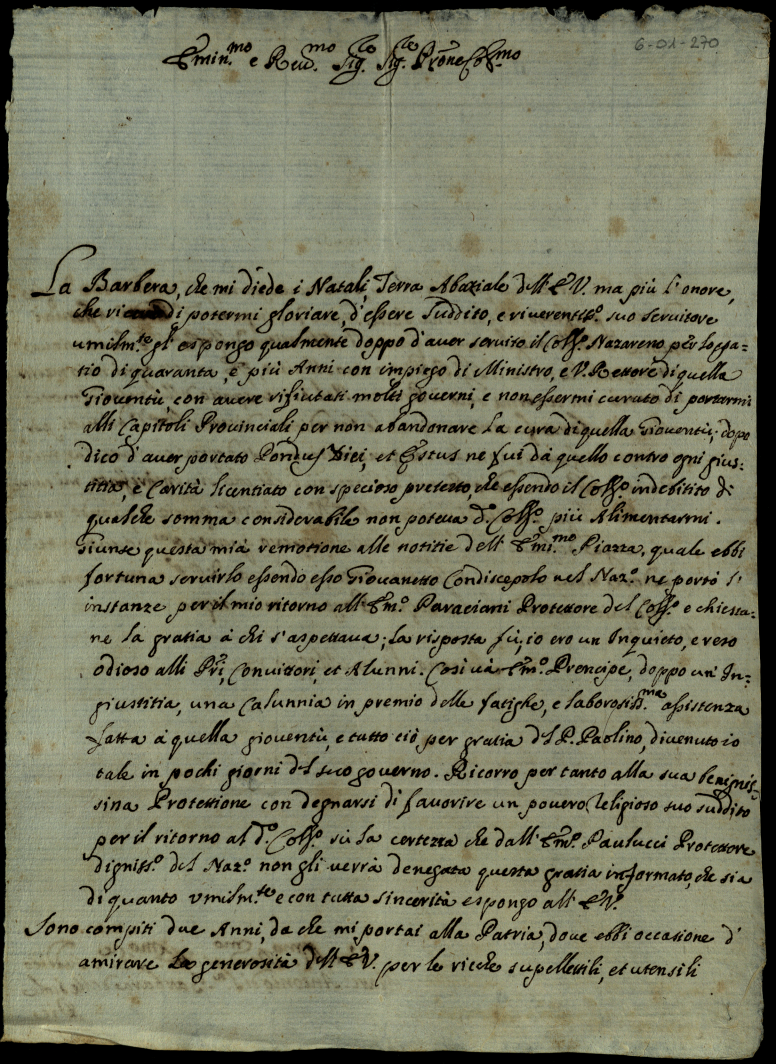 6-01-270
Emin.mo e Reu.mo Sig.re Sig.re Prone Col.mo
La Barbera, che mi diede i Natali, Terra Abaziale dell'E.V. ma più l'onore,
che di potermi gloriare, d'essere suddito, e riverentis.o suo servitore
umilm.te gl'espongo qualmente doppo d'aver servito il Coll.o Nazareno per lo spa=
tio di quaranta, e più Anni con impiego di Ministro, e V. Rettore di quella
Gioventù, con avere rifiutati molti governi, e non essermi curato di portarmi
alli Capitoli Provinciali per non abandonare la cura di quella Gioventù; dopo
dico d'aver portato Pondus Diei, et Estus ne fui da quello contro ogni gius=
titia, e Carità licentiato con specioso pretesto, che essendo il Coll.o indebitito di
qualche somma considerabile non poteva d.o Coll.o più Alimentarmi.
Giunse questa mia remotione alle notitie dell'Emi.mo Piazza, quale ebbi
fortuna servirlo essendo esso Giovanetto Condiscepolo nel Naz.o ne portò l'
instanze per il mio ritorno all'Em.o Paraciani Protettore del Coll.o e chiesta=
ne la gratia à chi s'aspettava; la risposta fù, io ero un Inquieto, e reso
odioso alli Pri, Convittori, et Alunni. Così và Em.o Prencipe, doppo un'In=
giustitia, una Calunnia in premio delle fatighe, e laborosiss.ma assistenza
fatta à quella gioventù, e tutto ciò, per gratia del P. Paolino, divenuto io
tale in pochi giorni del suo governo. Ricorro per tanto alla sua benignis=
sina Protettione con degnarsi di favorire un povero Religioso suo suddito
per il ritorno al d.o Coll.o sù la certezza che dall'Em.o Paulucci Protettore
digniss.o del Naz.o non gli verrà denegata questa gratia informato, che sia
di quanto umilm.te e con tutta sincerità espongo all'E.V.
Sono compiti due Anni, da che mi portai alla Patria, dove ebbi occasione d'
amirare la generosità dell'E.V. per le ricche supellettili, et utensili